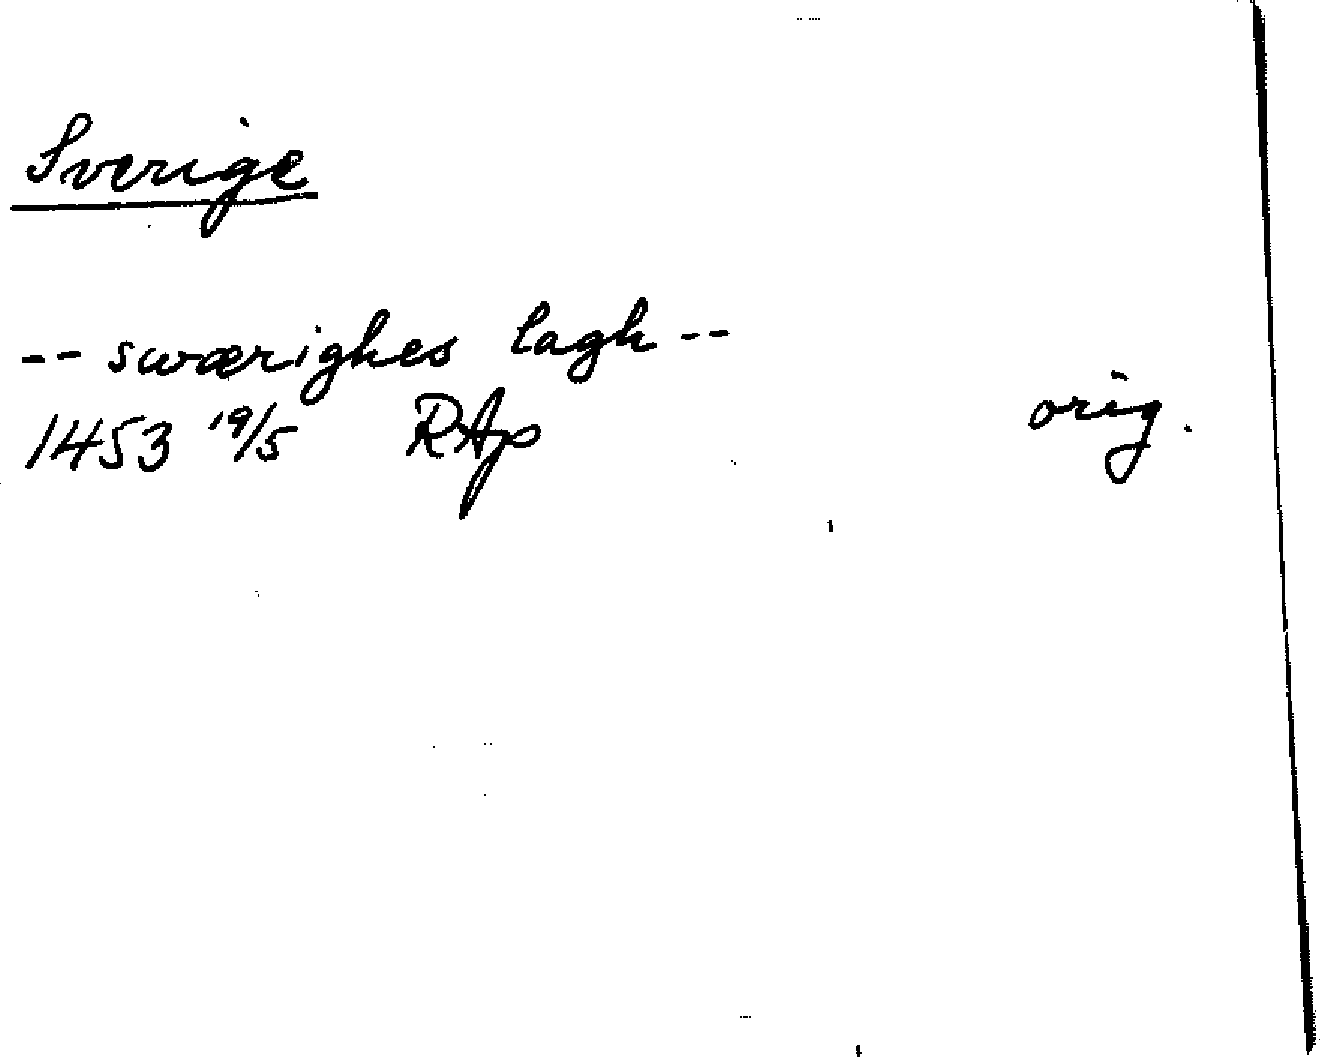 Sverige
-- swærighes lagh --
1453 19/5 RAp orig.